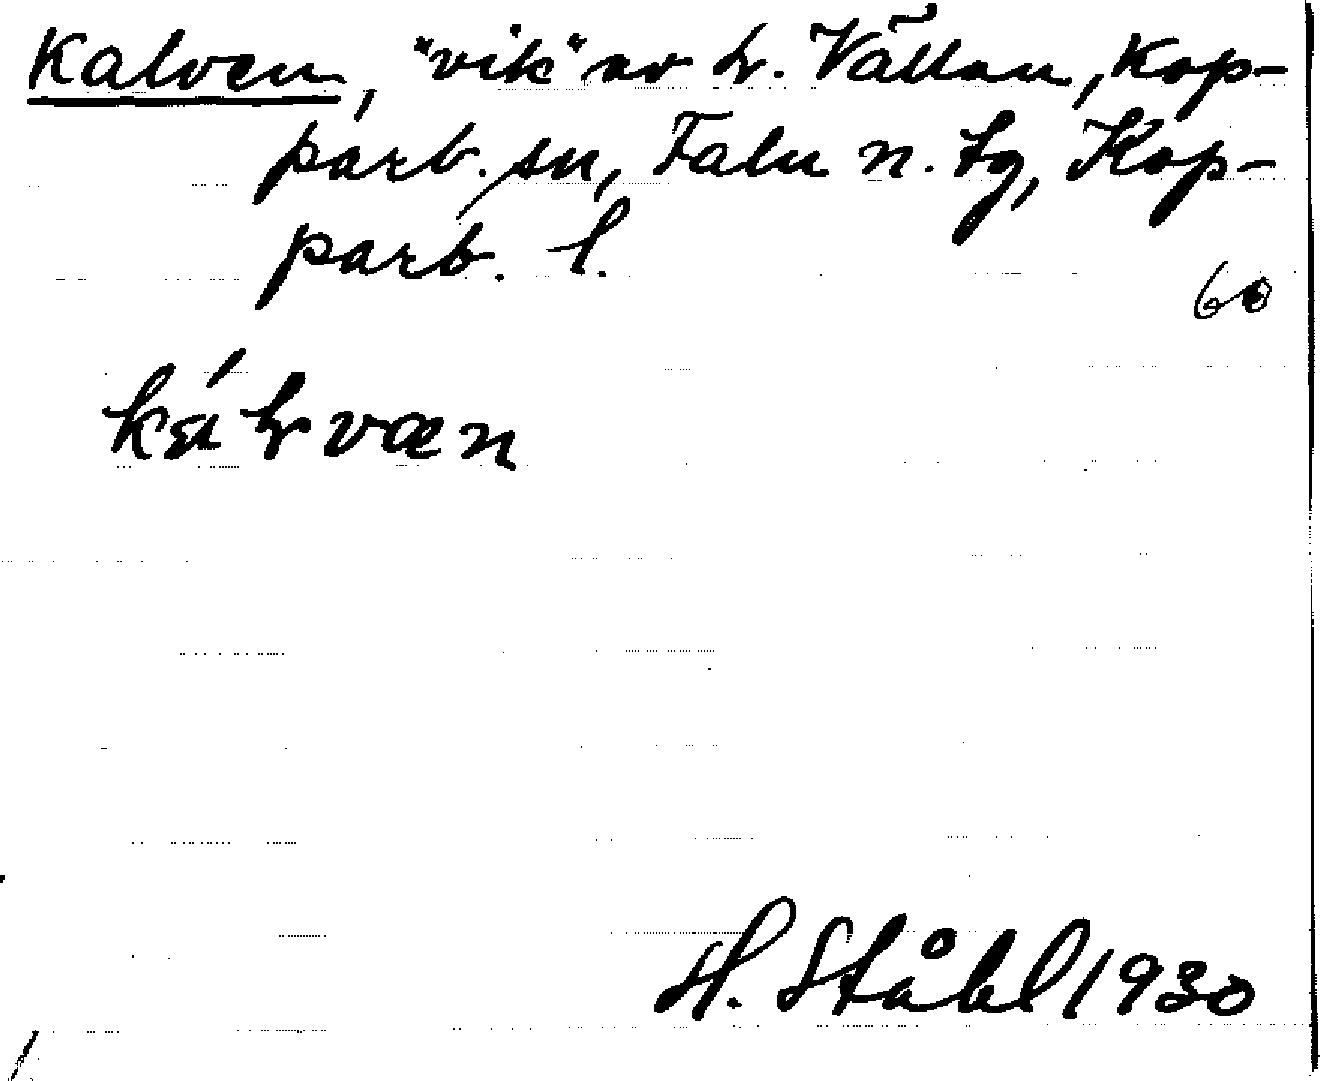 Kalven, "vik" av L. Vällan, Kop-
parb. sn, Falu n. tg, Kop-
parb. l.
60
H. Ståhl 1930